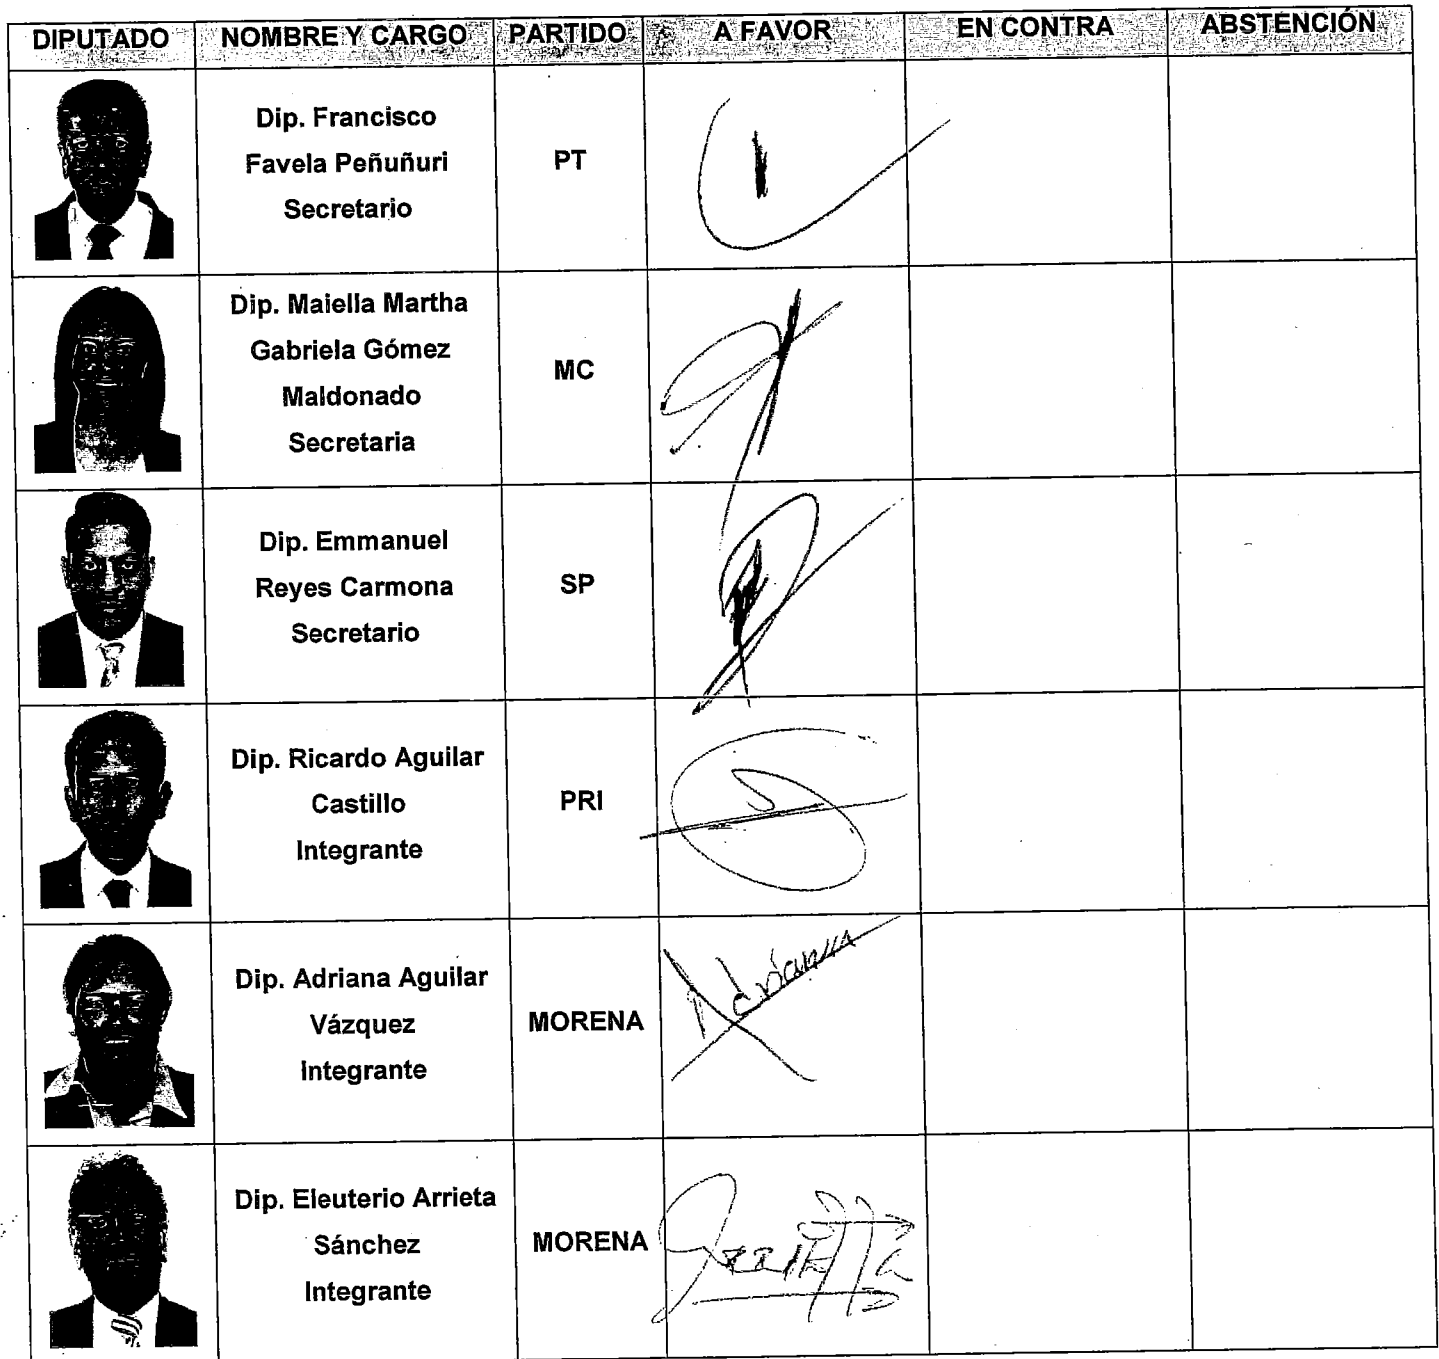 DIPUTADO NOMBRE Y CARGO PARTIDO A FAVOR EN CONTRA ABSTENCIÓN
Dip. Francisco
Favela Peñuñuri
Secretario
PT
Dip. Maiella Martha
Gabriela Gómez
Maldonado
Secretaria
MC
Dip. Emmanuel
Reyes Carmona
Secretario
SP
Dip. Ricardo Aguilar
Castillo
Integrante
PRI
Dip. Adriana Aguilar
Vázquez
Integrante
MORENA
Adriana
Dip. Eleuterio Arrieta
Sánchez
Integrante
MORENA